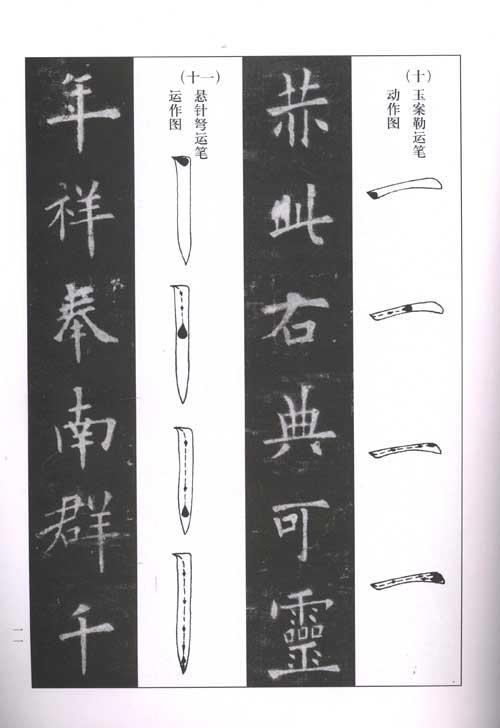 （十）玉案勒运笔
动作图
恭此右典可靈
（十一）悬针弩运笔
运作图
年祥奉南群千
一一